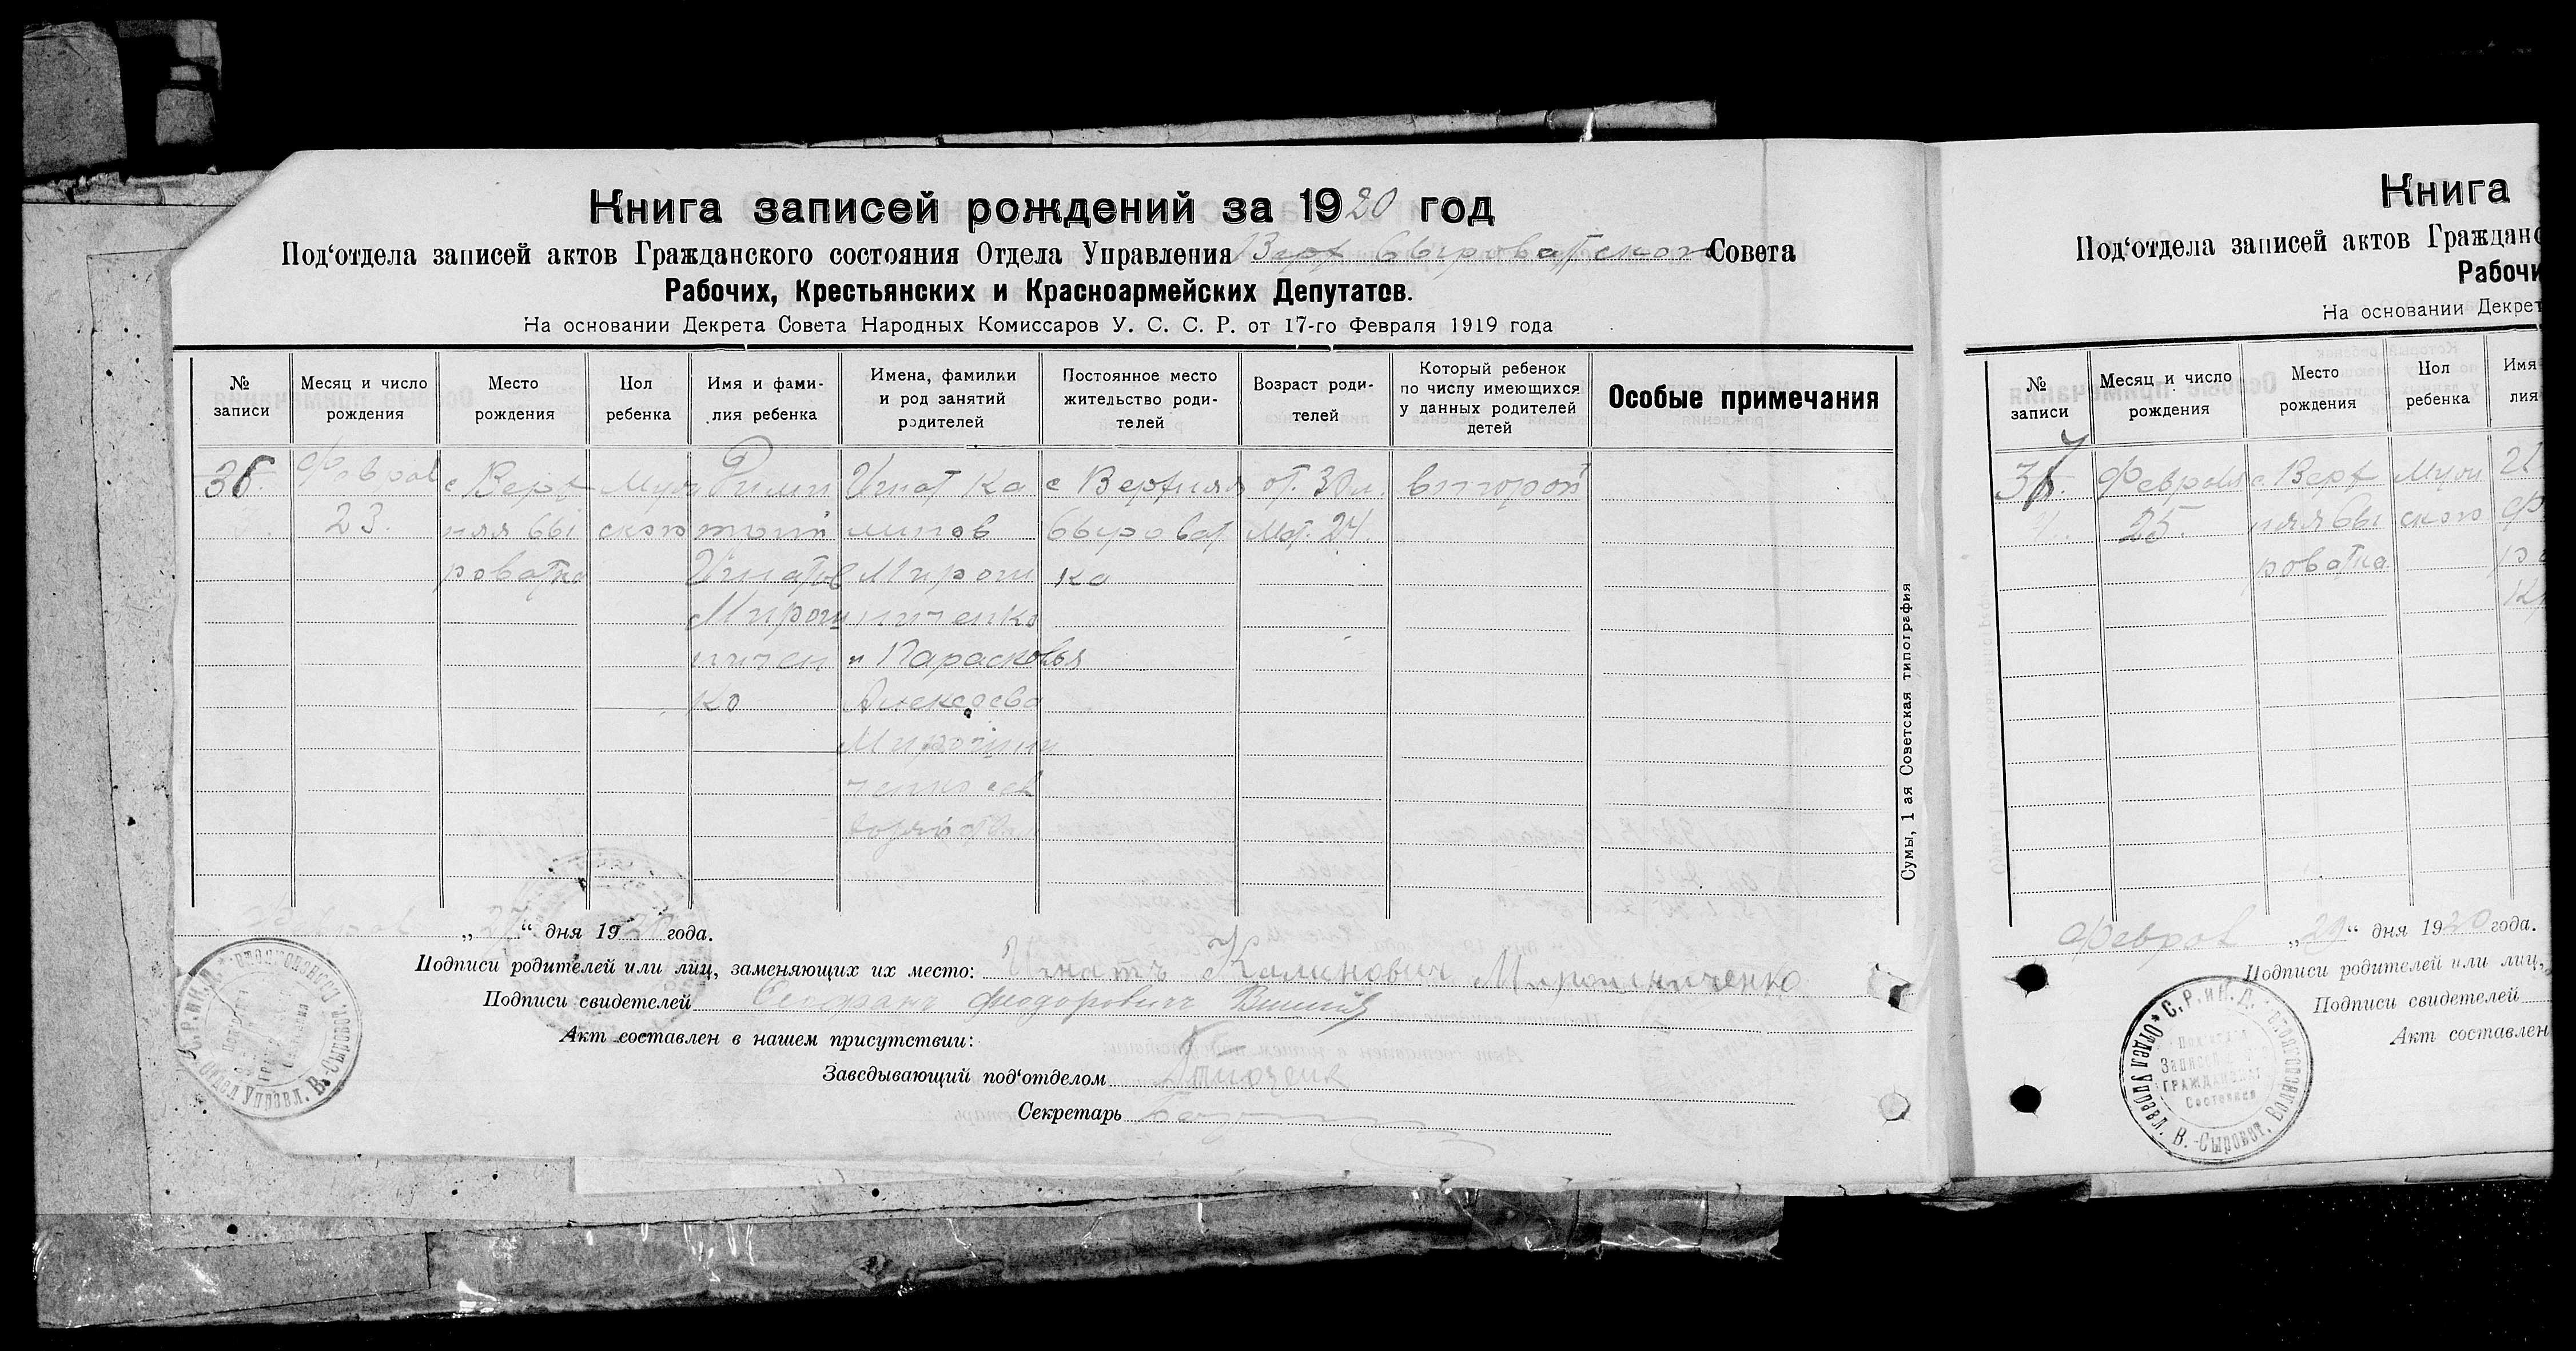 Книга записей рождений за 1920 год
Под'отдела записей актов Гражданского состояния Отдела Управления Верх Сыроватского Совета
Рабочих, Крестьянских и Красноармейских Депутатов.
На основании Декрета Совета Народных Комиссаров У. С. С. Р. от 17-го Февраля 1919 года
№ записи
Месяц и число рождения
Место рождения
Пол ребенка
Имя и фами-
лия ребенка
Имена, фамилии
и род занятий
родителей
Постоянное место
жительство роди-
телей
Возраст роди-
телей
Который ребенок
по числу имеющихся
у данных родителей
детей
Особые примечания
36.
Феврал
23.
с Верх
няя Сы
роватка
Муж
ского
Игнатов
Мирош
ничен
ко
Игнат Ка
линов
Мирош
ниченко
и Парасковья
Алексеева
Мирошни
с Верхняя
Сыроват
ка
от. 30 л.
Мат. 24.
второй
Сумы, 1 ая Советская типография
„27“ дня 1920 года.
Подписи родителей или лиц, заменяющих их место: Игнатъ Калинович Мирошниченко
Подписи свидетелей Феодорович
Акт составлен в нашем присутствии:
Заведывающий под'отделом
Секретарь
Отдел Управл. В.-Сыроват.
Книга
Под'отдела записей актов Гражданс
Рабочи
На основании Декрет
№ записи
Месяц и число рождения
Место рождения
Пол ребенка
Имя
лия
37.
Февраля
25.
с. Верх
няя Сы
роватка
Муж
ского
Феврал „29“ дня 1920 года.
Подписи родителей или лиц,
Подписи свидетелей
Акт составлен
С.Р. и К.Д. Волисполкома
Отдел Управл. В.-Сыроват.
Записей
Гражданског
Состояния